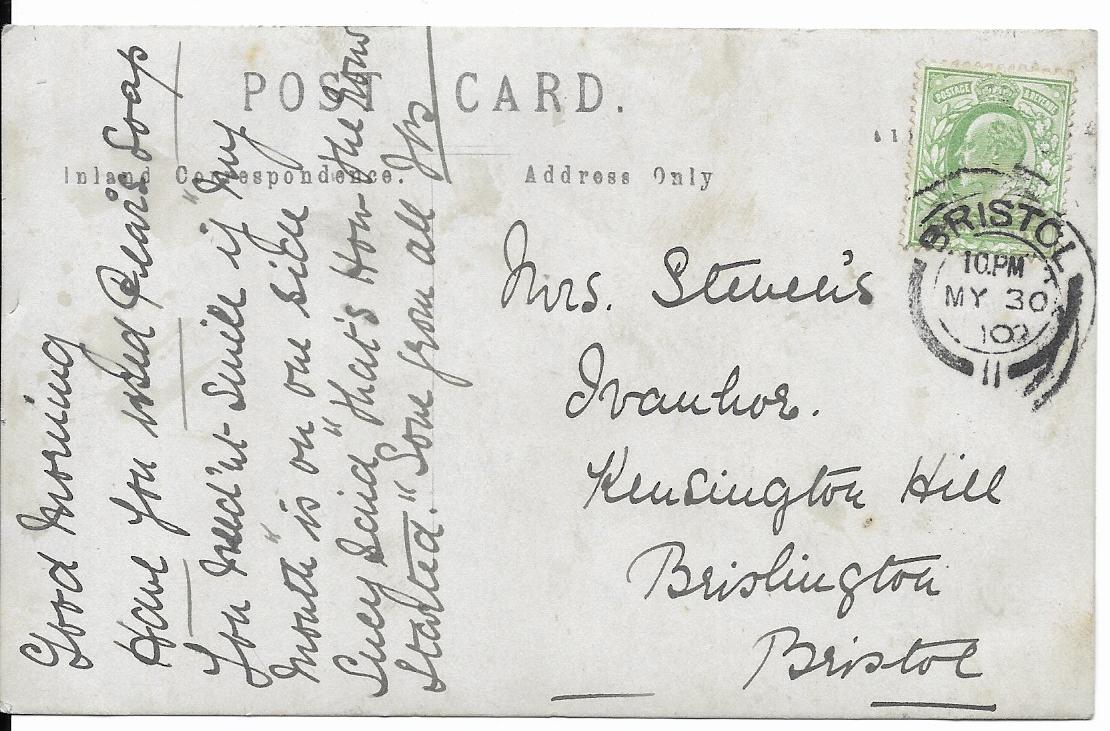 POST CARD.
Inland Correspondence.
Address Only
POSTAGE & REVENUE
BRISTOL
10.PM
MY 30
11
Good Morning
Have you used Pears Soap
You need'nt smile if "my
mouth" is on one side
Lucy said "that's How the Row
started." Love from all
Mrs. Steven's
Ivanhoe.
Kensington Hill
Brislington
Bristol